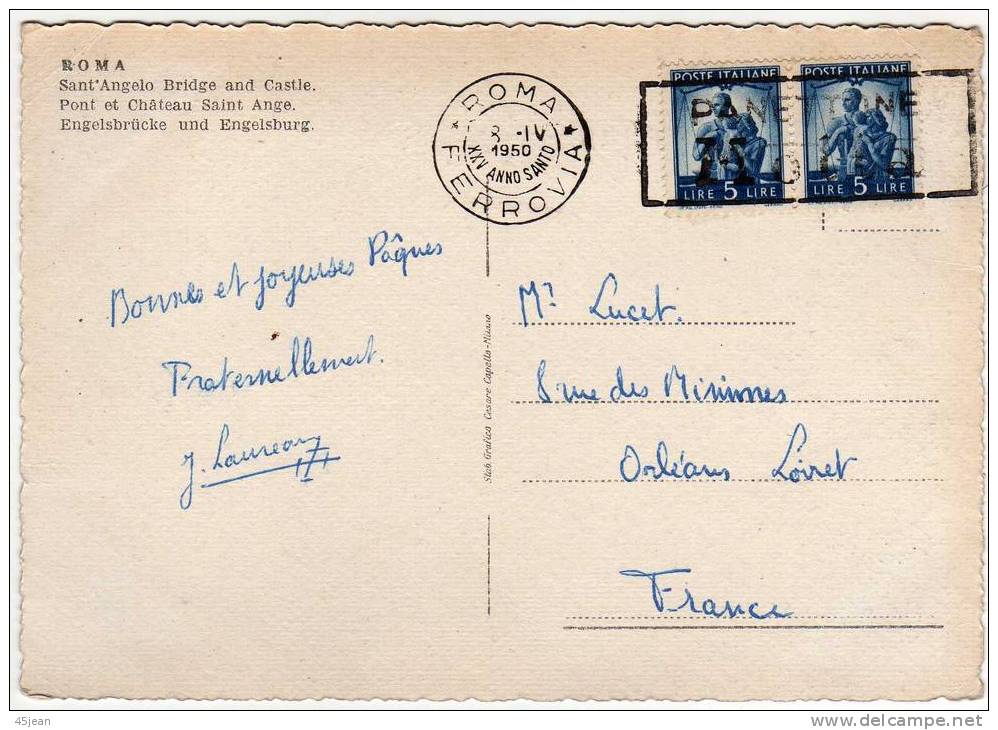 ROMA
Sant'Angelo Bridge and Castle.
Pont et Château Saint Ange.
Engelsbrücke und Engelsburg.
ROMA
8 -IV
1950
XXV ANNO SANTO
FERROVIA
POSTE ITALIANE
LIRE 5 LIRE
POSTE ITALIANE
LIRE 5 LIRE
PANETTONE
Bonnes et joyeuses Pâques
Fraternellement.
Stab. Grafico Cesare Capello-Milano
Mr Lucet.
8 rue des Minimes
Orléans Loiret
France
45jean
delcampe.net